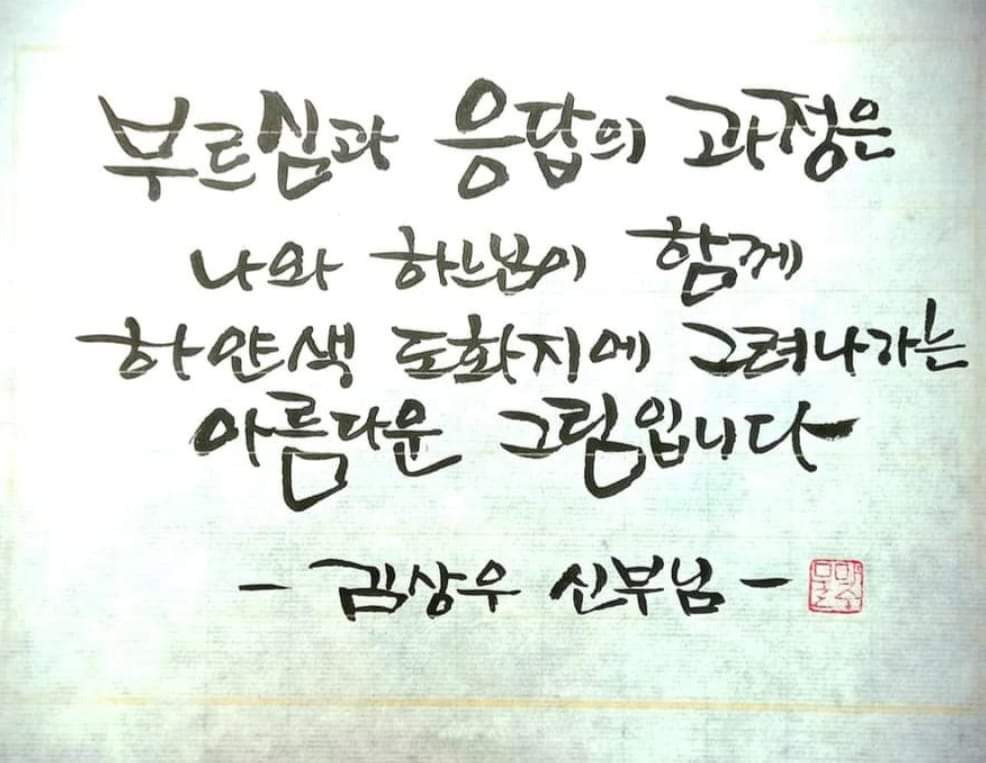 부르심과 응답의 과정은
나와 하느님이 함께
하얀색 도화지에 그려나가는
아름다운 그림입니다
- 김상우 신부님 -